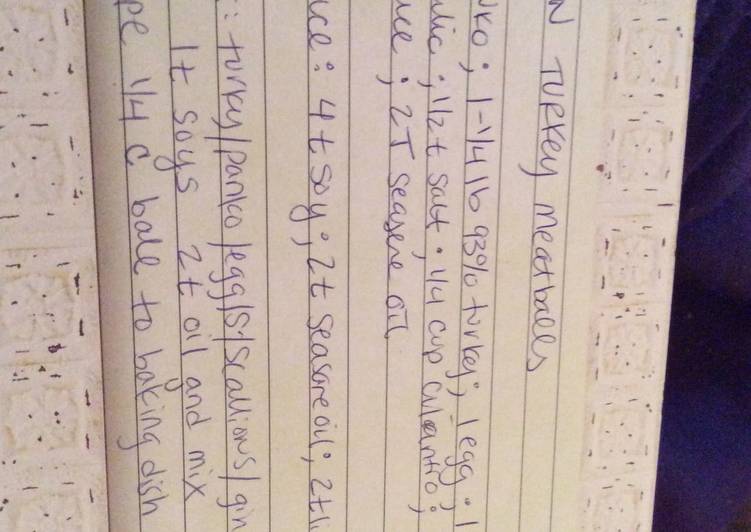 N Turkey meatballs
nko; 1-1/4 lb 93% turkey; 1 egg; 1
lic; 1/2 t salt; 1/4 cup cilantro;
uce; 2T seasere oil
uce: 4 t soy; 2t seasare oil; 2t li
: turky/panko/egg/S/scallions/gin
1t soys 2t oil and mix
pe 1/4 c ball to baking dish